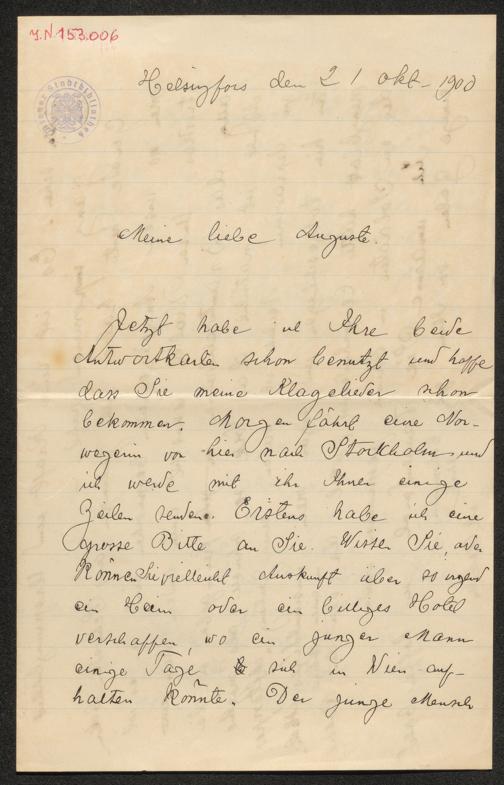 J.N 153.006
Wiener Stadtbibliothek
Helsingfors den 21 okt. 1900
Meine liebe Auguste.
Jetzt habe ich Ihre beide
Antwortkarten schon benutzt und hoffe
dass Sie meine Klagelieder schon
bekommen. Morgen fährt eine Nor-
wegerin von hier nach Stockholm und
ich werde mit ihr Ihnen einige
Zeilen senden. Erstens habe ich eine
grosse Bitte an Sie. Wissen Sie, oder
können Sie vielleicht Auskunft über so irgend
ein Heim oder ein billiges Hotel
verschaffen, wo ein junger Mann
einige Tage sich in Wien auf-
halten könnte. Der junge Mensch